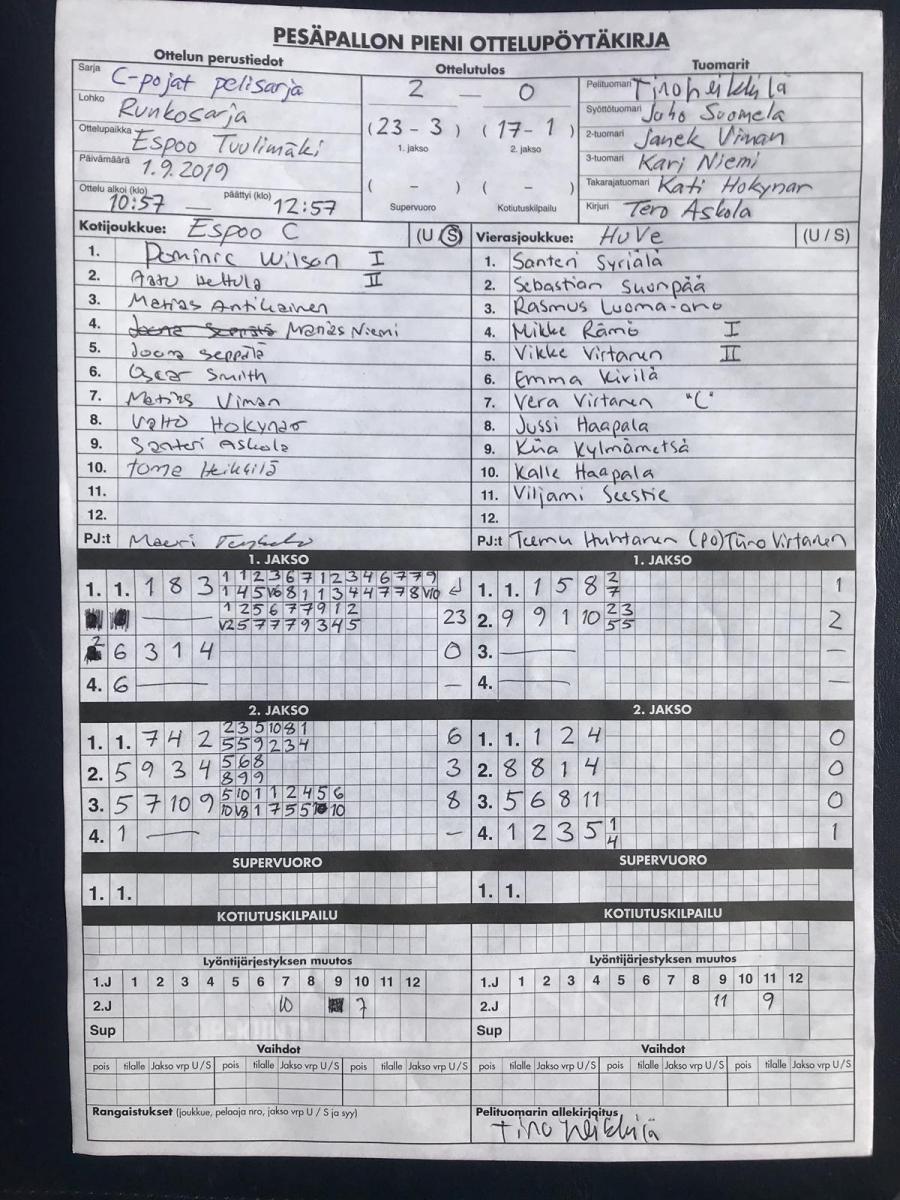 PESÄPALLON PIENI OTTELUPÖYTÄKIRJA
Ottelun perustiedot
Sarja C-pojat pelisarja
Lohko Runkosarja
Ottelupaikka Espoo Tuulimäki
Päivämäärä 1.9.2019
Ottelu alkoi (klo) 10:57 — päättyi (klo) 12:57
Ottelutulos
2 — 0
(23 - 3) (17 - 1)
1. jakso 2. jakso
( - ) ( - )
Supervuoro Kotiutuskilpailu
Tuomarit
Pelituomari Timo Heikkilä
Syöttötuomari Juho Suomela
2-tuomari Janek Viman
3-tuomari Kari Niemi
Takarajatuomari Kati Hokynar
Kirjuri Tero Askola
Kotijoukkue: Espoo C (U / S)
1. Dominic Wilson I
2. II
3. Matias Antikainen
4. Manias Niemi
5. Joona Seppälä
6. Oscar Smith
7. Matias Viman
8. Valto Hokynar
9. Santeri Askola
10. Heikkilä
11.
12.
PJ:t Mauri
Vierasjoukkue: HuVe (U / S)
1. Santeri Syrjälä
2. Sebastian Suonpää
3. Rasmus Luoma-aro
4. Mikke Rämö I
5. Vikke Virtanen II
6. Emma Kivilä
7. Vera Virtanen "C"
8. Jussi Haapala
9. Kiia Kylmämetsä
10. Kalle Haapala
11. Viljami Seestie
12.
PJ:t Teemu Huhtanen (PO) Timo Virtanen
1. JAKSO
1. 1. 1 8 3 1 1 2 3 6 7 1 2 3 4 6 7 7 9
1 4 5 V6 8 1 1 3 4 4 7 7 8 V10
— 1 2 5 6 7 7 9 1 2 23
V2 5 7 7 7 9 3 4 5
2 6 3 1 4 0
4. 6 — —
1. JAKSO
1. 1. 1 5 8 2 1
7
2. 9 9 1 10 2 3 2
5 5
3. — —
4. — —
2. JAKSO
1. 1. 7 4 2 2 3 5 10 8 1 6
5 5 9 2 3 4
2. 5 9 3 4 5 6 8 3
8 9 9
3. 5 7 10 9 5 10 1 1 2 4 5 6 8
10 V8 1 7 5 5 10
4. 1 — —
2. JAKSO
1. 1. 1 2 4 0
2. 8 8 1 4 0
3. 5 6 8 11 0
4. 1 2 3 5 1 1
4
SUPERVUORO
1. 1.
SUPERVUORO
1. 1.
KOTIUTUSKILPAILU
KOTIUTUSKILPAILU
Lyöntijärjestyksen muutos
1.J 1 2 3 4 5 6 7 8 9 10 11 12
2.J 10 7
Sup
Lyöntijärjestyksen muutos
1.J 1 2 3 4 5 6 7 8 9 10 11 12
2.J 11 9
Sup
Vaihdot
pois tilalle Jakso vrp U/S pois tilalle Jakso vrp U/S pois tilalle Jakso vrp U/S
Vaihdot
pois tilalle Jakso vrp U/S pois tilalle Jakso vrp U/S pois tilalle Jakso vrp U/S
Rangaistukset (joukkue, pelaaja nro, jakso vrp U / S ja syy)
Pelituomarin allekirjoitus
Timo Heikkilä